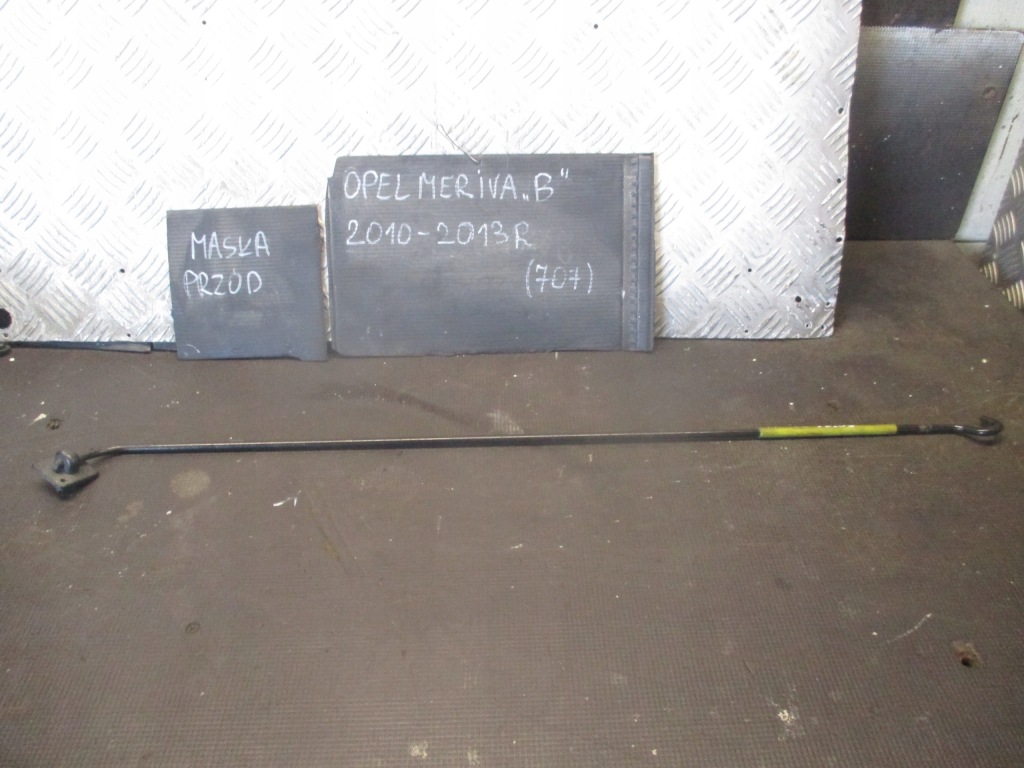 MASKA
PRZÓD
OPEL MERIVA „B"
2010-2013R
(707)